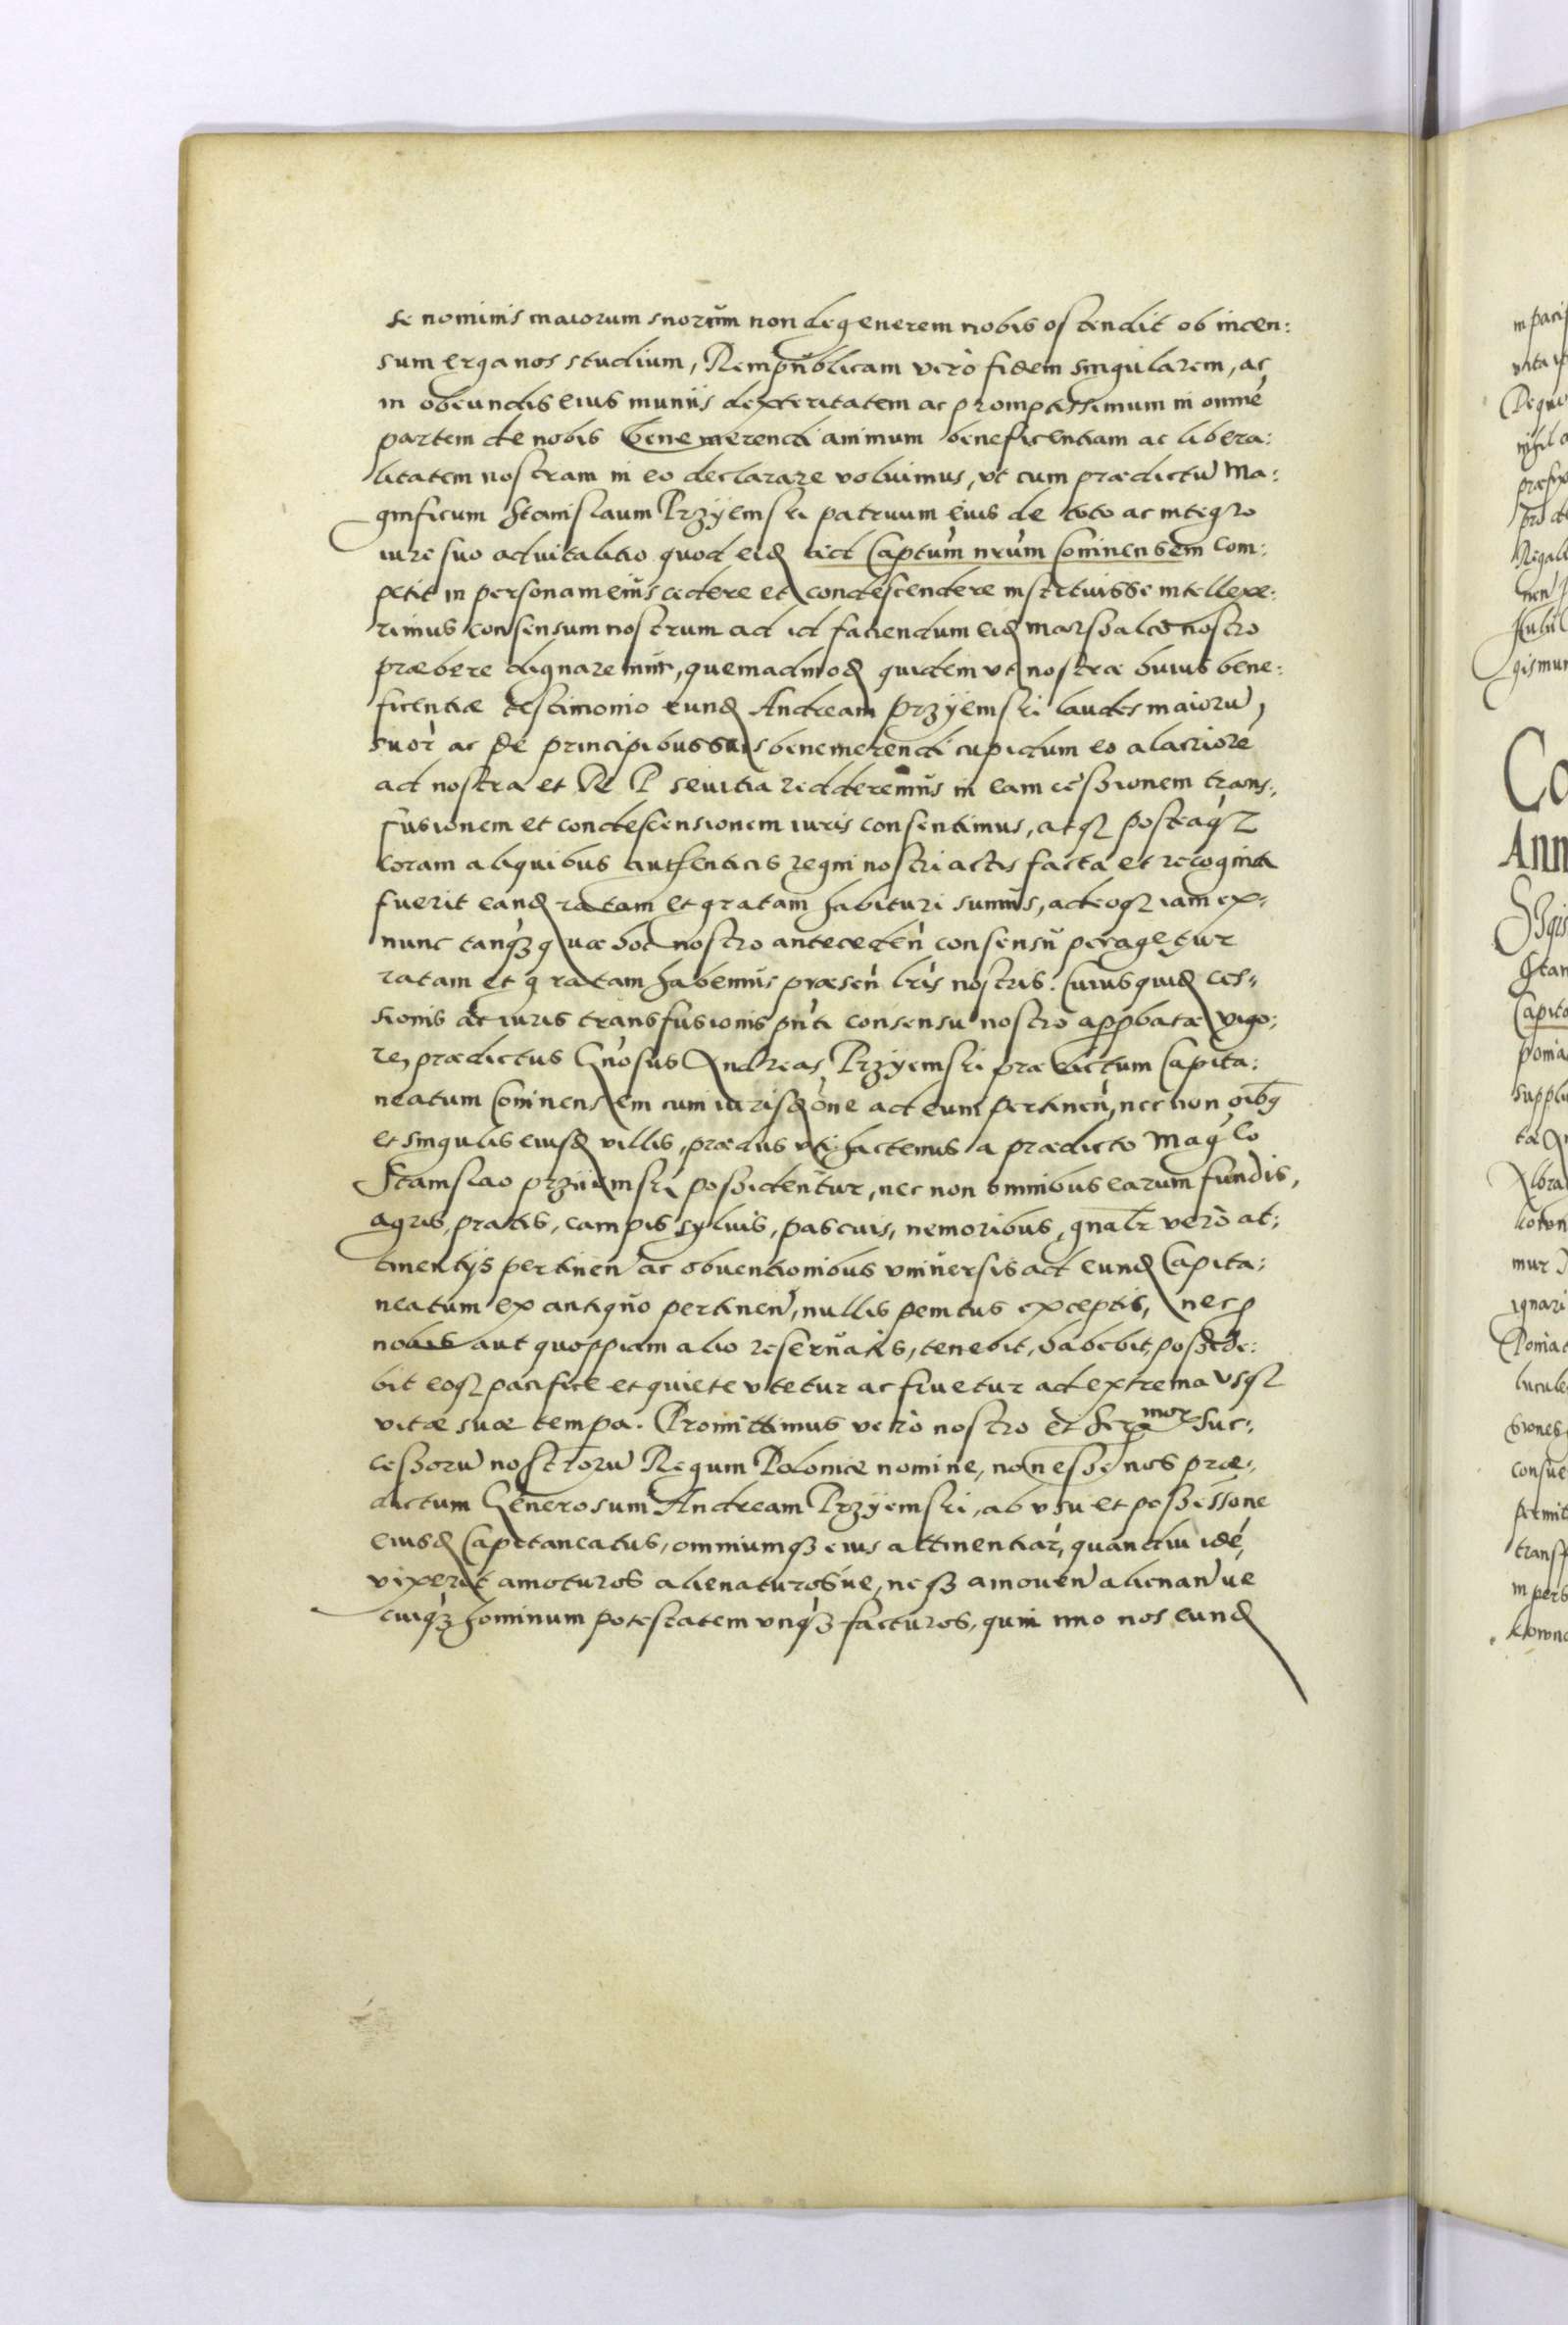 se nominis maiorum suorum non degenerem nobis ostendit ob incen:
sum erga nos studium, Rempublicam verò fidem singularem, ac
in obeundis eius muniis dexteritatem ac promptissimum in omné
partem de nobis bene merendi animum beneficentiam ac libera:
litatem nostram in eo declarare voluimus, vt cum prædictũ Ma:
gnificum Stanislaum Przÿemski patruum eius de toto ac integro
iure suo aduitalitio quod eid ad Captum nrum Coninensem com:
petit in personam eius cedere et condescendere instituisse intellexe:
rimus consensum nostrum ad id faciendum eid Marsalco nostro
præbere dignaremur, quemadmod quidem vt nostræ huius bene:
ficentiæ testimonio eund Andream Przÿemski laudes maiorũ,
suor ac de principibus suis bene merendi cupidum eo alacrioré
ad nostra et R P seuitia redderemus in eam cessionem trans:
fusionem et condescensionem iuris consentimus, atq posteaq
coram aliquibus authenticis regni nostri actis facta et recognita
fuerit eand ratam et gratam habituri sumus, adeoq iam ex:
nunc tanq quæ hoc nostro anteceden consensu peragetur
ratam et gratam habemus præsen lris nostris. Cuius quid ces:
sionis ac iuris transfusionis pnti consensu nostro appbatæ vigo:
re, prædictus Gnosus Andreas Przÿemski prædictum Capita:
neatum Coninensem cum iurisdone ad eum pertinen, nec non oibq
et singulis eiusd villis, prædiis vti hactenus a prædicto Magco
Stanislao Przÿemski possidentur, nec non omnibus earum fundis,
agris, pratis, campis syluis, pascuis, nemoribus, gnalr verò at:
tinentijs pertinen ac obuentionibus vniuersis ad eund Capita:
neatum ex antiquo pertinen, nullis penitus exceptis, neq
nobis aut quoppiam alio reseruatis, tenebit, habebit, posside:
bit eoq pacifice et quiete vtetur ac fruetur ad extrema vsq
vitæ suæ tempa. Promittimus verò nostro et Sermor Suc:
cessorũ nostrorũ Regum Poloniæ nomine, non esse nos præ:
dictum Generosum Andream Przÿemski, ab vsu et possessione
eiusd Capitaneatus, omniumq eius attinentiar, quandiu idé,
vixerit amoturos alienaturosue, neq amouen alienanue
cuiq hominum potestatem vnq facturos, quin imo nos eund